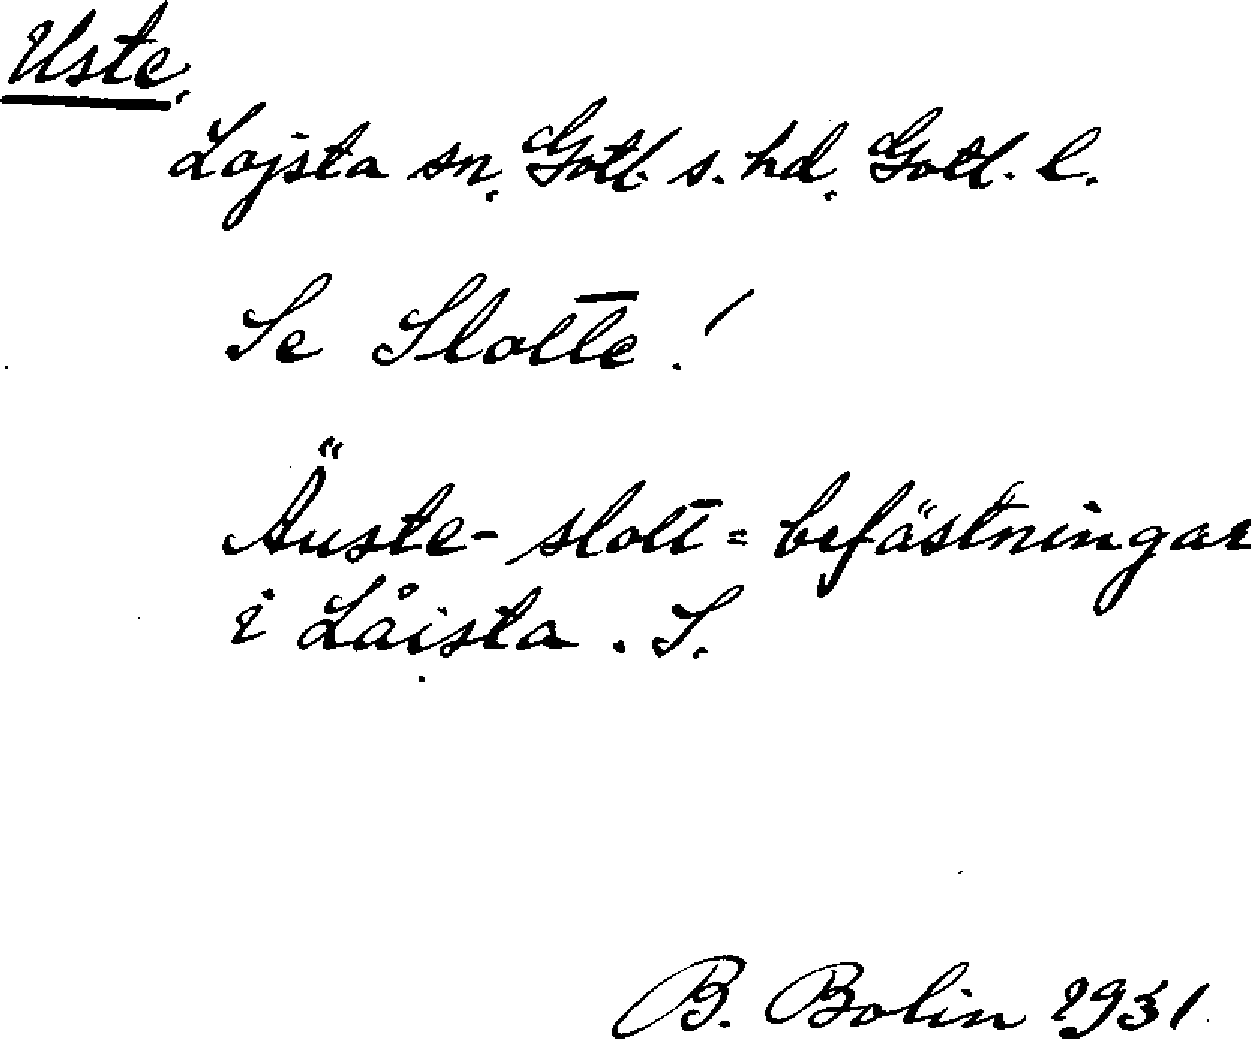 Uste.
Lojsta sn. Gotl. s. hd. Gotl. l.
Se Slotte!
Äuste- slott = befästningar
i Låista. S.
B. Bolin 1931